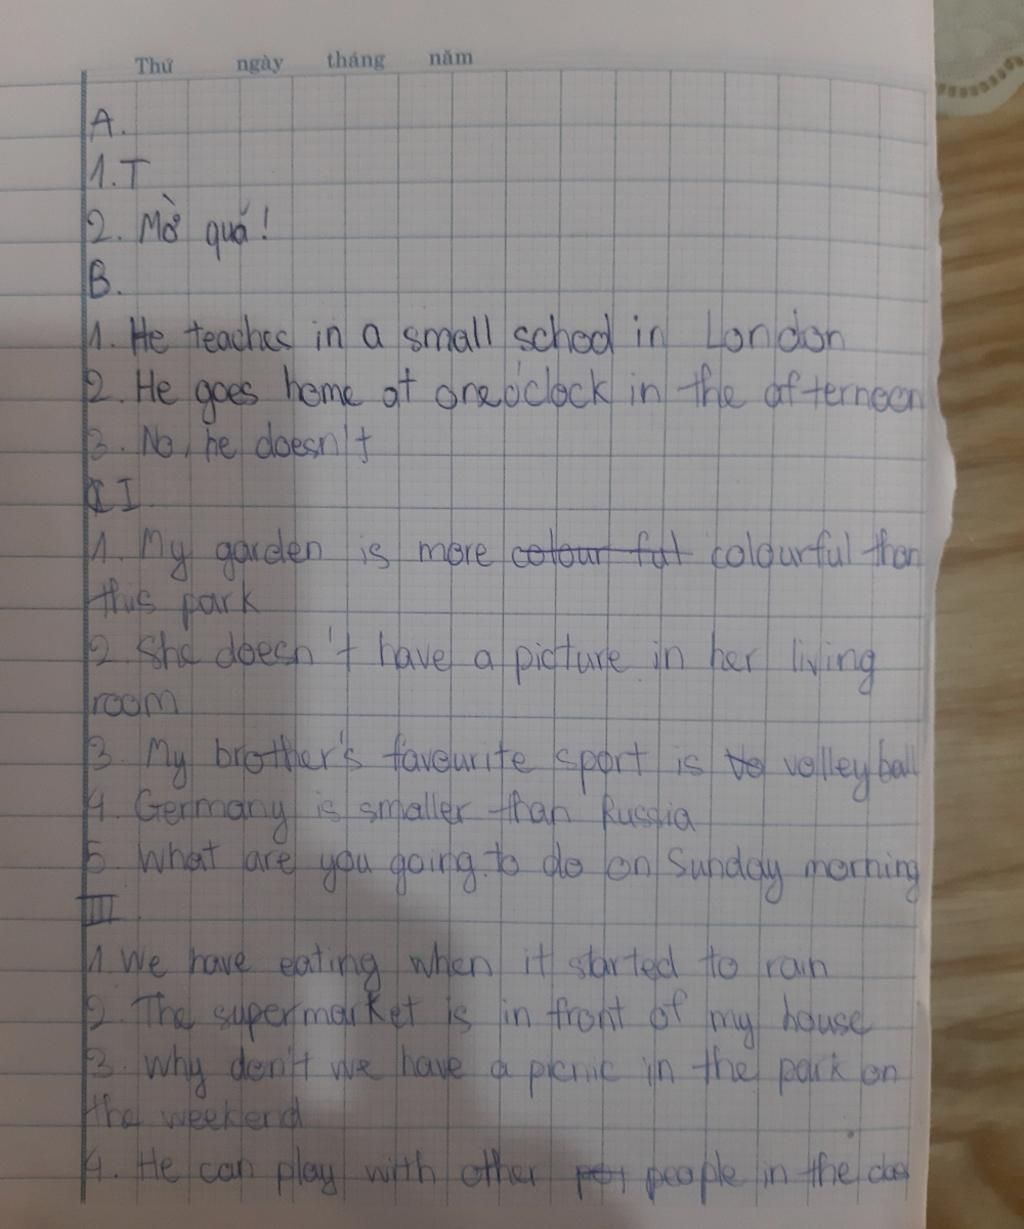 Thứ ngày tháng năm
A.
1. T
2. Mờ quá!
B.
1. He teaches in a small school in London
2. He goes home at one o'clock in the afternoon
3. No, he doesn't
II
1. My garden is more colour ful colourful than
this park
2. She doesn't have a picture in her living
room
3. My brother's favourite sport is vo volleyball
4. Germany is smaller than Russia
5. What are you going to do on Sunday morning
III
1. We have eating when it started to rain
2. The supermarket is in front of my house
3. Why don't we have a picnic in the park on
the weekend
4. He can play with other people in the